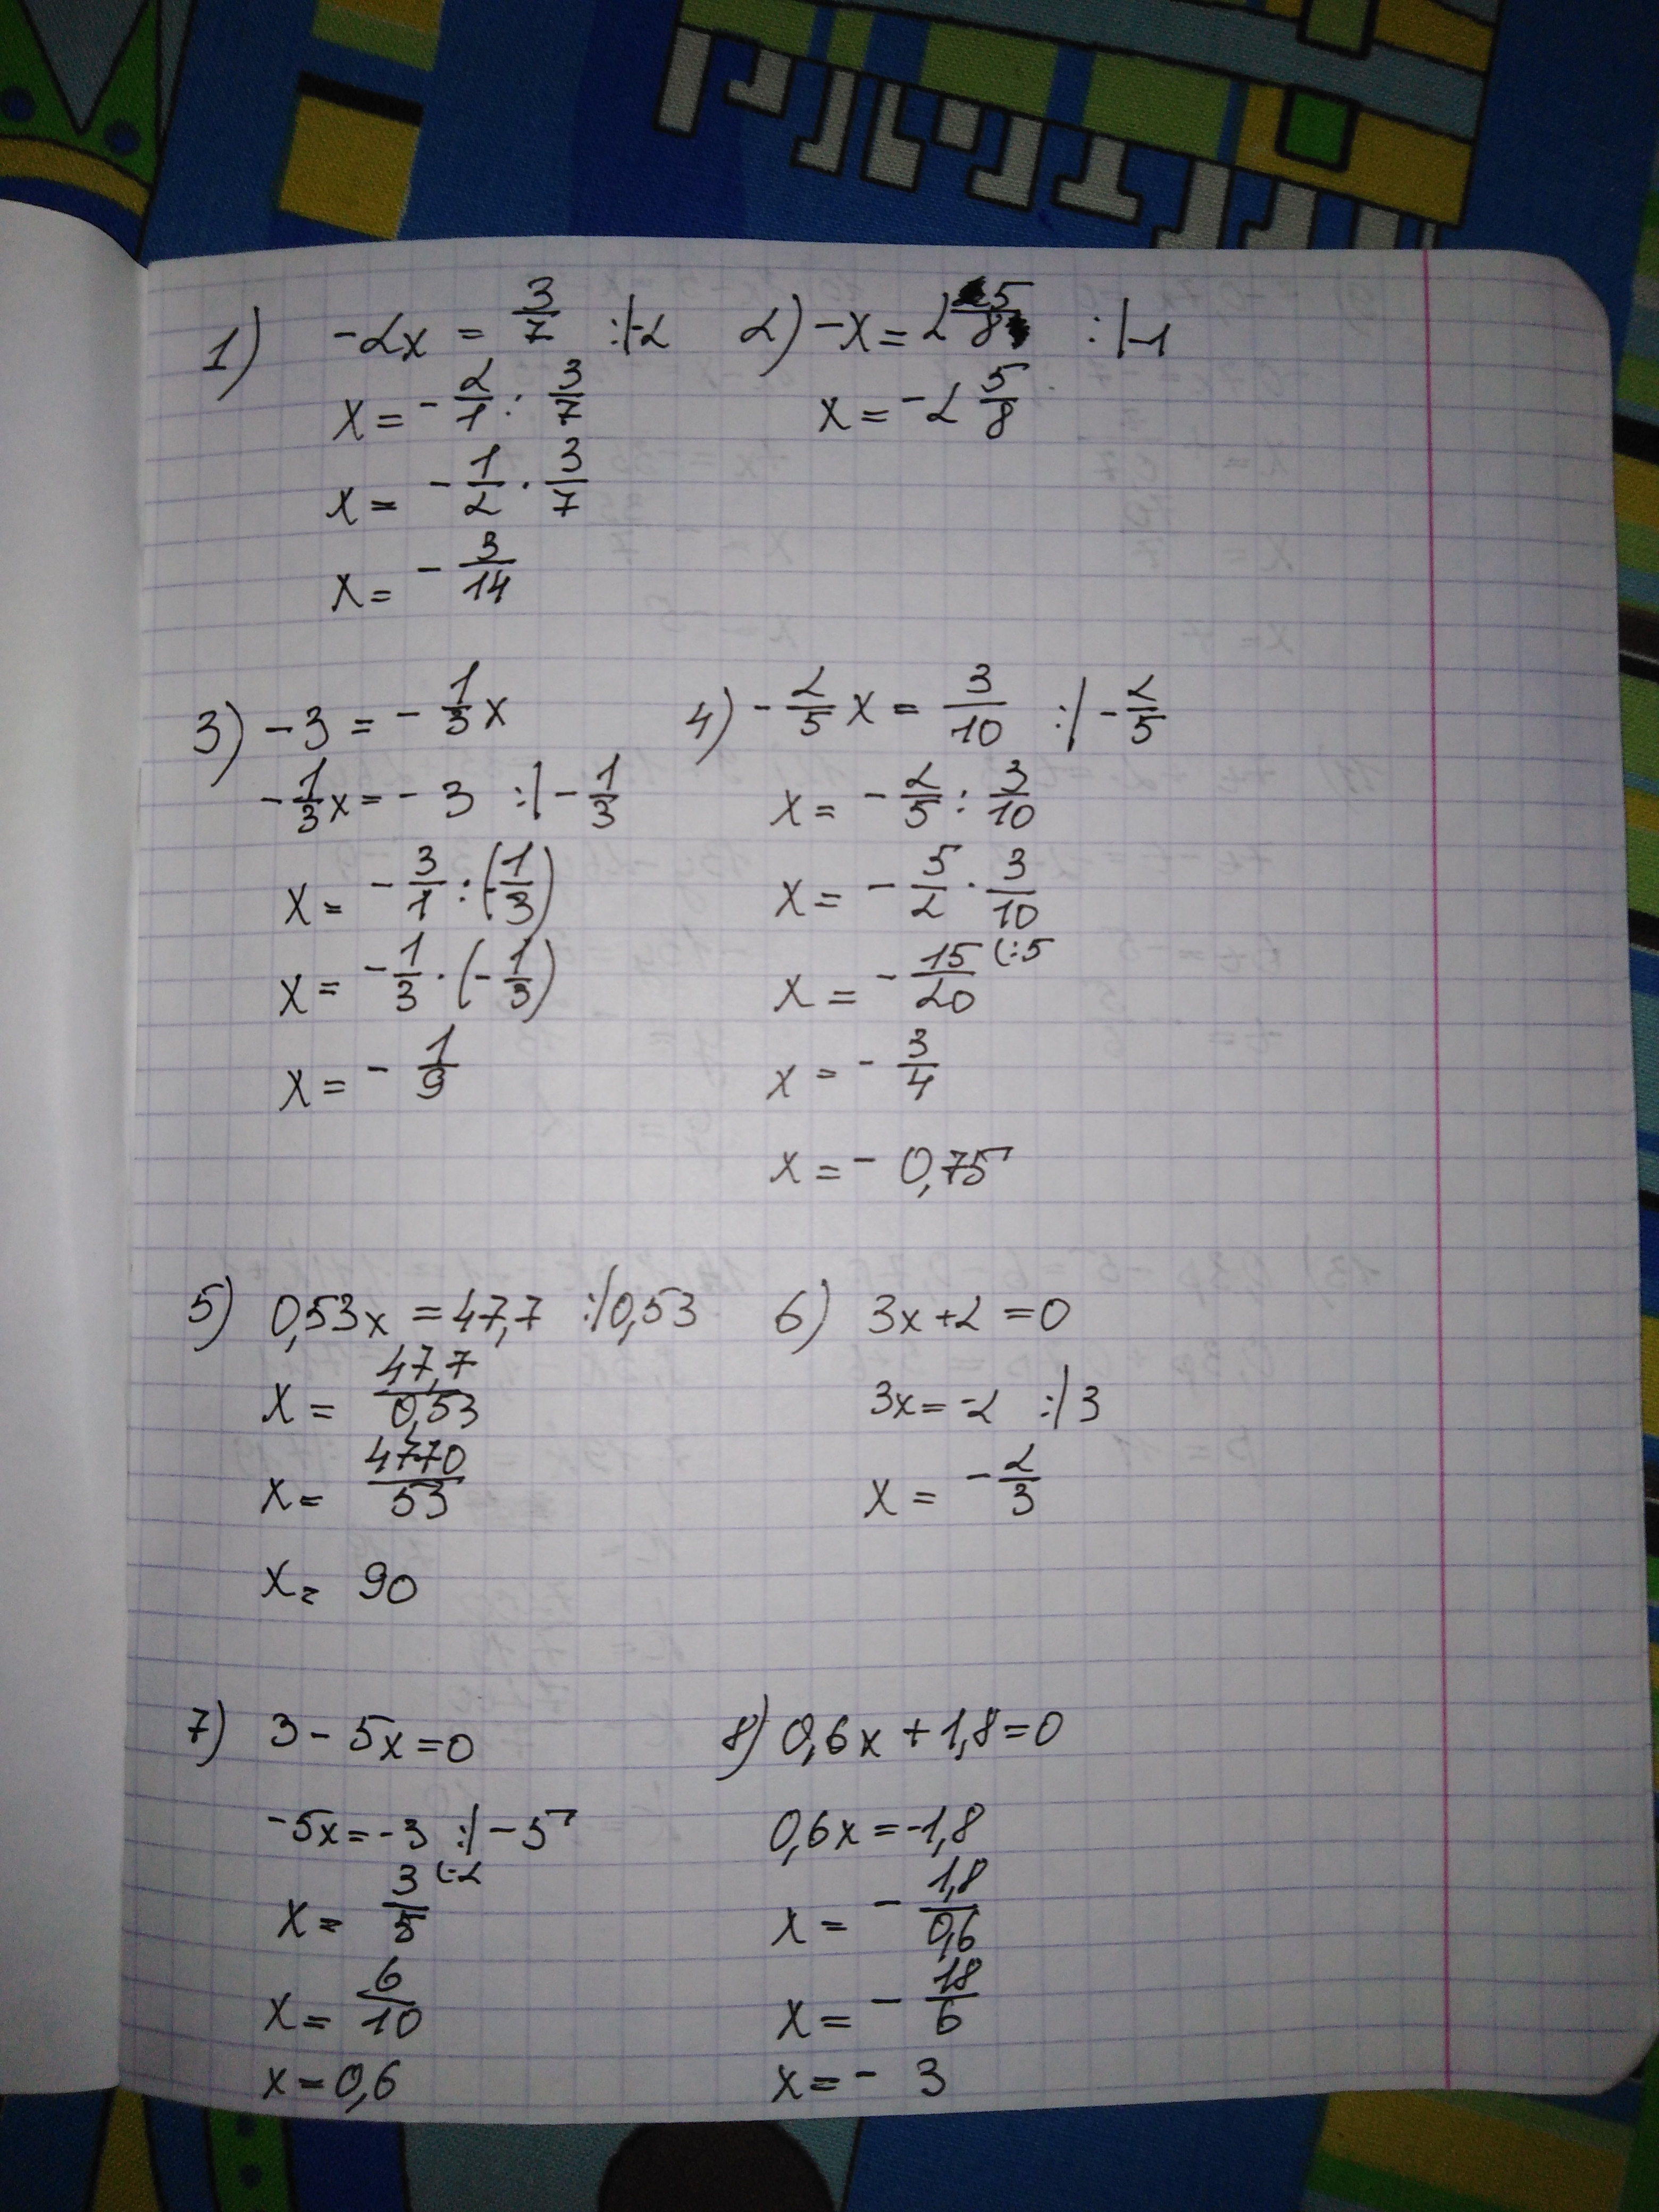 1) -2x = 3/7 :|-2
x = - 2/1 : 3/7
x = - 1/2 · 3/7
x = - 3/14
2) -x = 2 5/8 :|-1
x = -2 5/8
3) -3 = - 1/3 x
- 1/3 x = - 3 :| - 1/3
x = - 3/1 : (- 1/3)
x = - 1/3 · (- 1/3)
x = - 1/9
4) - 2/5 x = 3/10 :| - 2/5
x = - 2/5 : 3/10
x = - 5/2 · 3/10
x = - 15/20 (:5
x = - 3/4
x = - 0,75
5) 0,53x = 47,7 :|0,53
x = 47,7/0,53
x = 4770/53
x = 90
6) 3x+2 = 0
3x = -2 :|3
x = - 2/3
7) 3 - 5x = 0
-5x = -3 :| -5
x = 3/5 (·2
x = 6/10
x = 0,6
8) 0,6x + 1,8 = 0
0,6x = -1,8
x = - 1,8/0,6
x = - 18/6
x = - 3